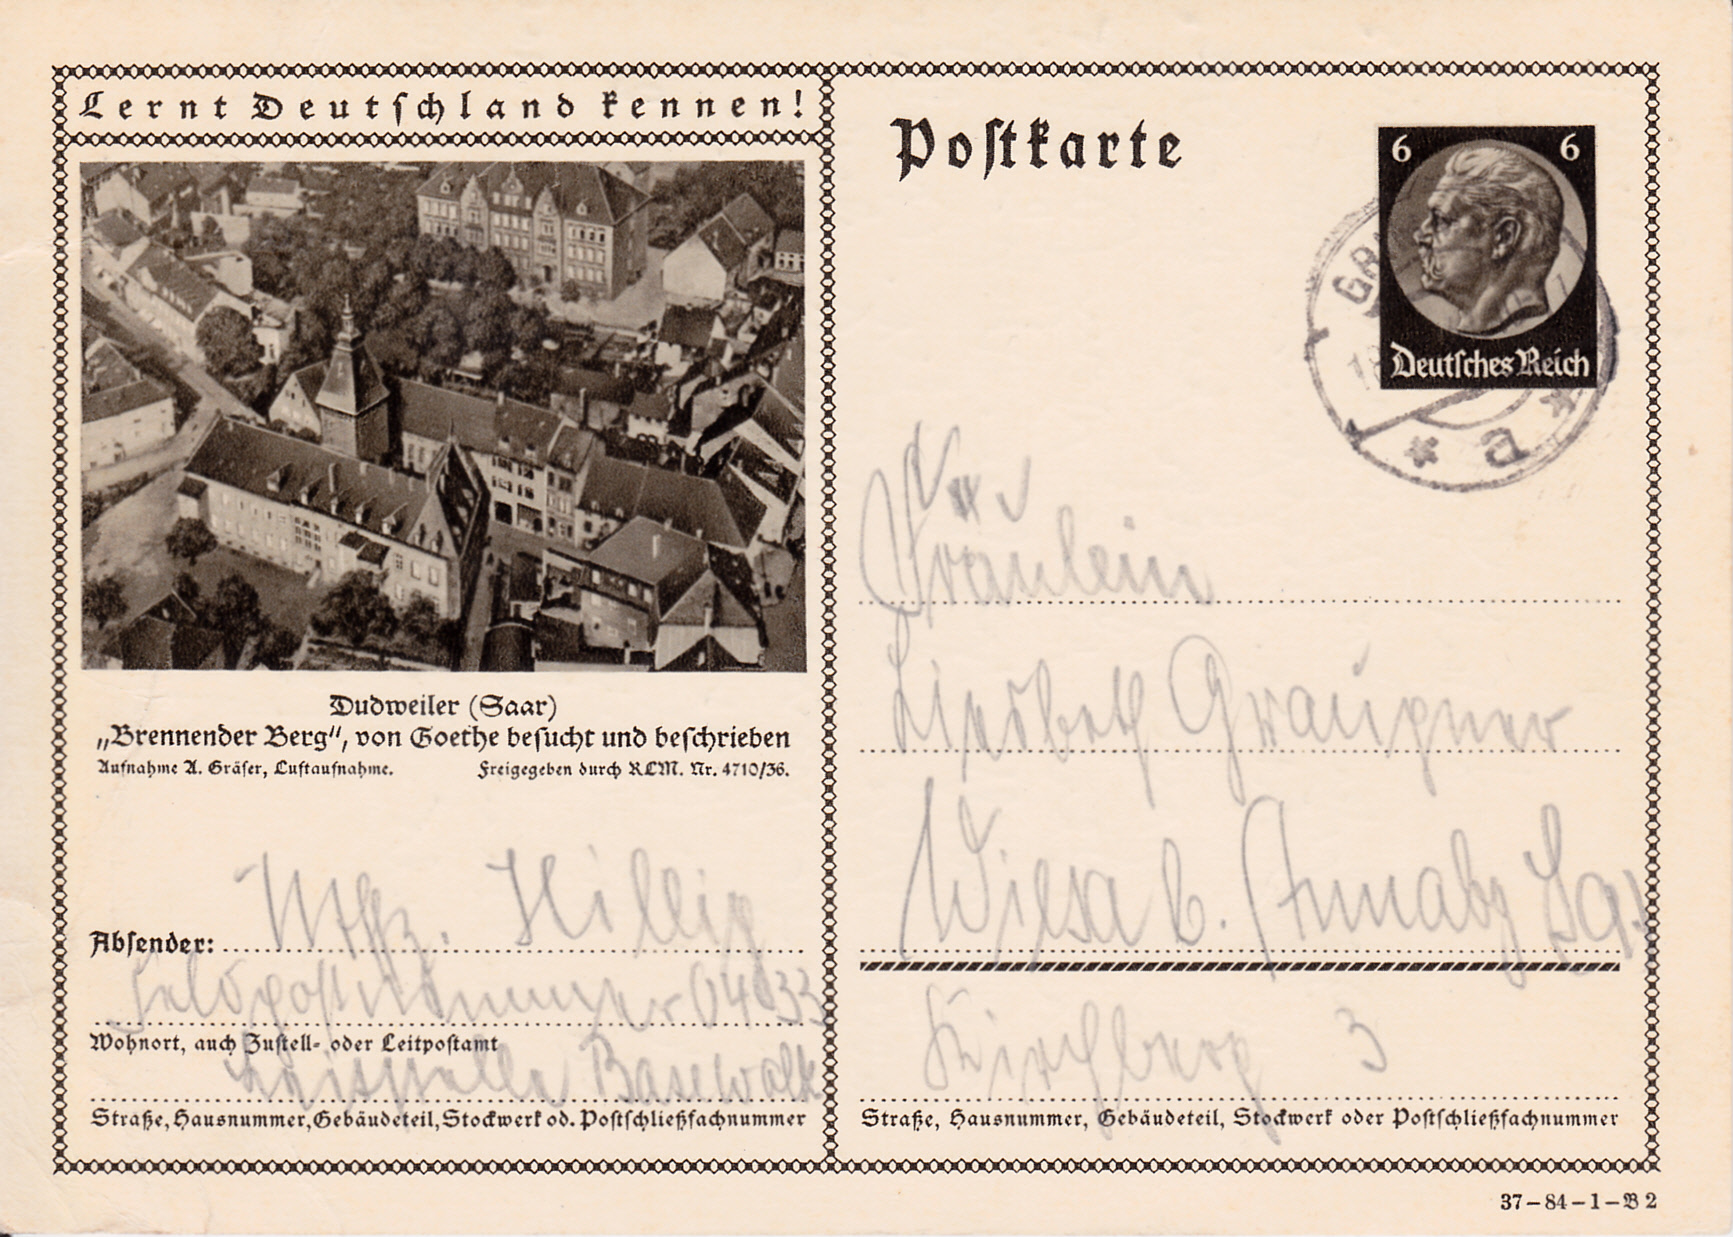 Lernt Deutschland kennen!
Dudweiler (Saar)
„Brennender Berg", von Goethe besucht und beschrieben
Aufnahme A. Gräser, Luftaufnahme. Freigegeben durch RLM. Nr. 4710/36.
Absender: Uffz. Hillig
Feldpostnummer 04033
Wohnort, auch Zustell- oder Leitpostamt
Leitstelle Basewalk
Straße, Hausnummer, Gebäudeteil, Stockwerk od. Postschließfachnummer
Postkarte
6 6
Deutsches Reich
a
Fräulein
Liesbeth Graupner
Wiesa b. Annabg Sa.
Kirchberg 3
Straße, Hausnummer, Gebäudeteil, Stockwerk oder Postschließfachnummer
37-84-1-B 2